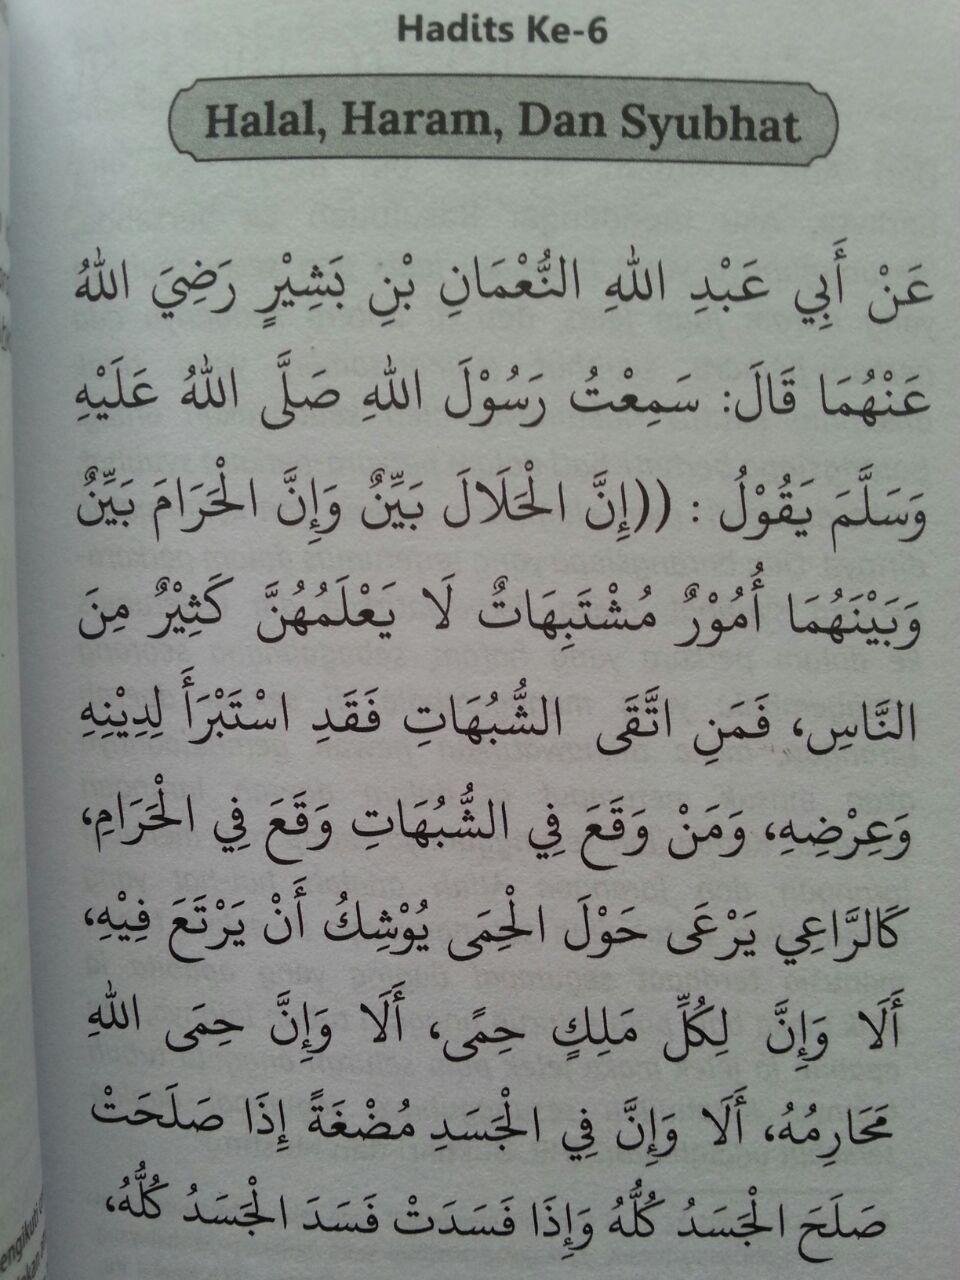 Hadits Ke-6
Halal, Haram, Dan Syubhat
عَنْ أَبِي عَبْدِ اللهِ النُّعْمَانِ بْنِ بَشِيْرٍ رَضِيَ اللهُ
عَنْهُمَا قَالَ: سَمِعْتُ رَسُوْلَ اللهِ صَلَّى اللهُ عَلَيْهِ
وَسَلَّمَ يَقُوْلُ : ((إِنَّ الْحَلَالَ بَيِّنٌ وَإِنَّ الْحَرَامَ بَيِّنٌ
وَبَيْنَهُمَا أُمُوْرٌ مُشْتَبِهَاتٌ لَا يَعْلَمُهُنَّ كَثِيْرٌ مِنَ
النَّاسِ، فَمَنِ اتَّقَى الشُّبُهَاتِ فَقَدِ اسْتَبْرَأَ لِدِيْنِهِ
وَعِرْضِهِ، وَمَنْ وَقَعَ فِي الشُّبُهَاتِ وَقَعَ فِي الْحَرَامِ،
كَالرَّاعِي يَرْعَى حَوْلَ الْحِمَى يُوْشِكُ أَنْ يَرْتَعَ فِيْهِ،
أَلَا وَإِنَّ لِكُلِّ مَلِكٍ حِمًى، أَلَا وَإِنَّ حِمَى اللهِ
مَحَارِمُهُ، أَلَا وَإِنَّ فِي الْجَسَدِ مُضْغَةً إِذَا صَلَحَتْ
صَلَحَ الْجَسَدُ كُلُّهُ وَإِذَا فَسَدَتْ فَسَدَ الْجَسَدُ كُلُّهُ،